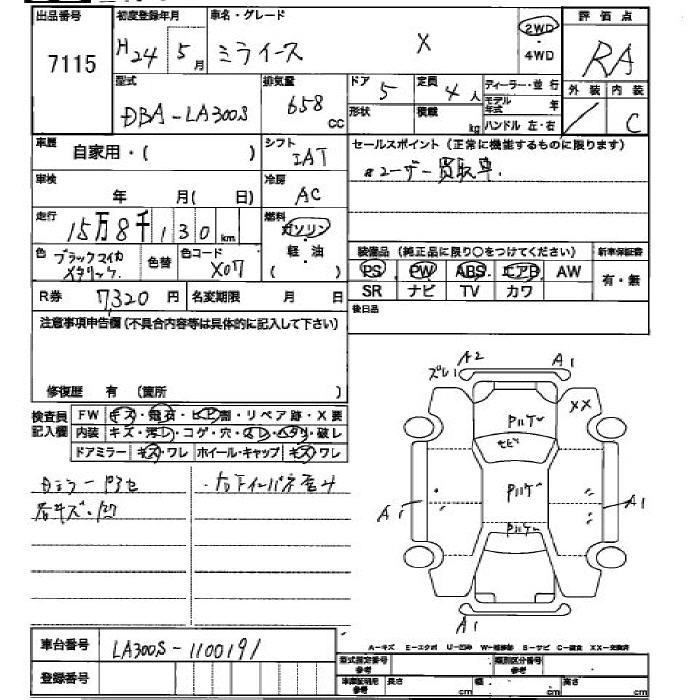 出品番号
7115
初度登録年月
H24 5月
車名・グレード
ミライース X
2WD
・
4WD
評価点
RA
外装 内装
C
型式
DBA-LA300S
排気量
658 CC
ドア
5
定員
4人
形状
積載
kg
ディーラー・並行
モデル年式 年
ハンドル 左・右
車歴
自家用・( )
シフト
IAT
セールスポイント (正常に機能するものに限ります)
ユーザー買取車.
車検
年 月( 日)
冷房
AC
走行
15万8千130 km
燃料
ガソリン
・
軽油
( )
色
ブラックマイカ
メタリック
色替
色コード
X07
装備品 (純正品に限り○をつけてください)
PS PW ABS エアB AW
SR ナビ TV カワ
新車保証書
有・無
R券 7,320円
名変期限 月 日
後日品
注意事項申告欄 (不具合内容等は具体的に記入して下さい)
修復歴 有 (箇所 )
検査員
記入欄
FW キズ・飛石・ヒビ割・リペア跡・X要
内装 キズ・汚レ・コゲ・穴・スレ・ヘタリ・破レ
ドアミラー キズ・ワレ ホイール・キャップ キズ・ワレ
ズレ1 A2 A1
XX
Pルーフ
Pルーフ
A1 A1
A1
A-キズ E-エクボ U-凹み W-補修跡 S-サビ C-腐食 XX-交換済
車台番号
LA300S-1100191
登録番号
型式指定番号
参考
類別区分番号
参考
車庫証明用
参考
長さ cm 幅 cm 高さ cm